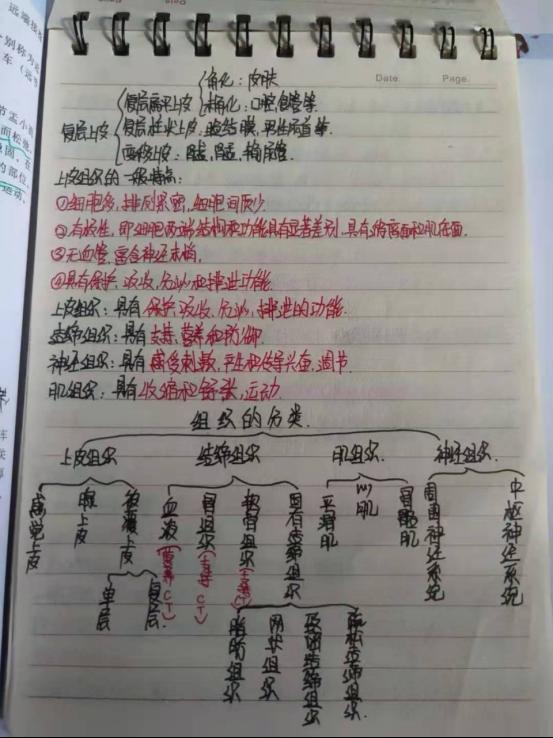 Date.
Page.
角化：皮肤
复层扁平上皮
未角化：口腔,食管等.
复层上皮
复层柱状上皮：睑结膜,男性尿道等.
变移上皮：肾盏,肾盂,输尿管.
上皮组织的一般特点：
①细胞多,排列紧密,细胞间质少.
②有极性,即细胞两端结构和功能具有显著差别,具有游离面和基底面.
③无血管,富含神经末梢.
④具有保护,吸收,分泌和排泄功能.
上皮组织：具有保护,吸收,分泌,排泄的功能.
结缔组织：具有支持,营养和防御.
神经组织：具有感受刺激,产生和传导兴奋,调节.
肌组织：具有收缩和舒张,运动.
组织的分类.
上皮组织
结缔组织
肌组织.
神经组织.
感觉上皮
腺上皮
被覆上皮
血液(营养CT)
骨组织(支持CT)
软骨组织(支持CT)
固有结缔组织
平滑肌
心肌
骨骼肌
周围神经系统
中枢神经系统
单层
复层.
脂肪组织
网状组织
致密结缔组织
疏松结缔组织.
远端
别称为
车
而松弛.
的部位.
运动.